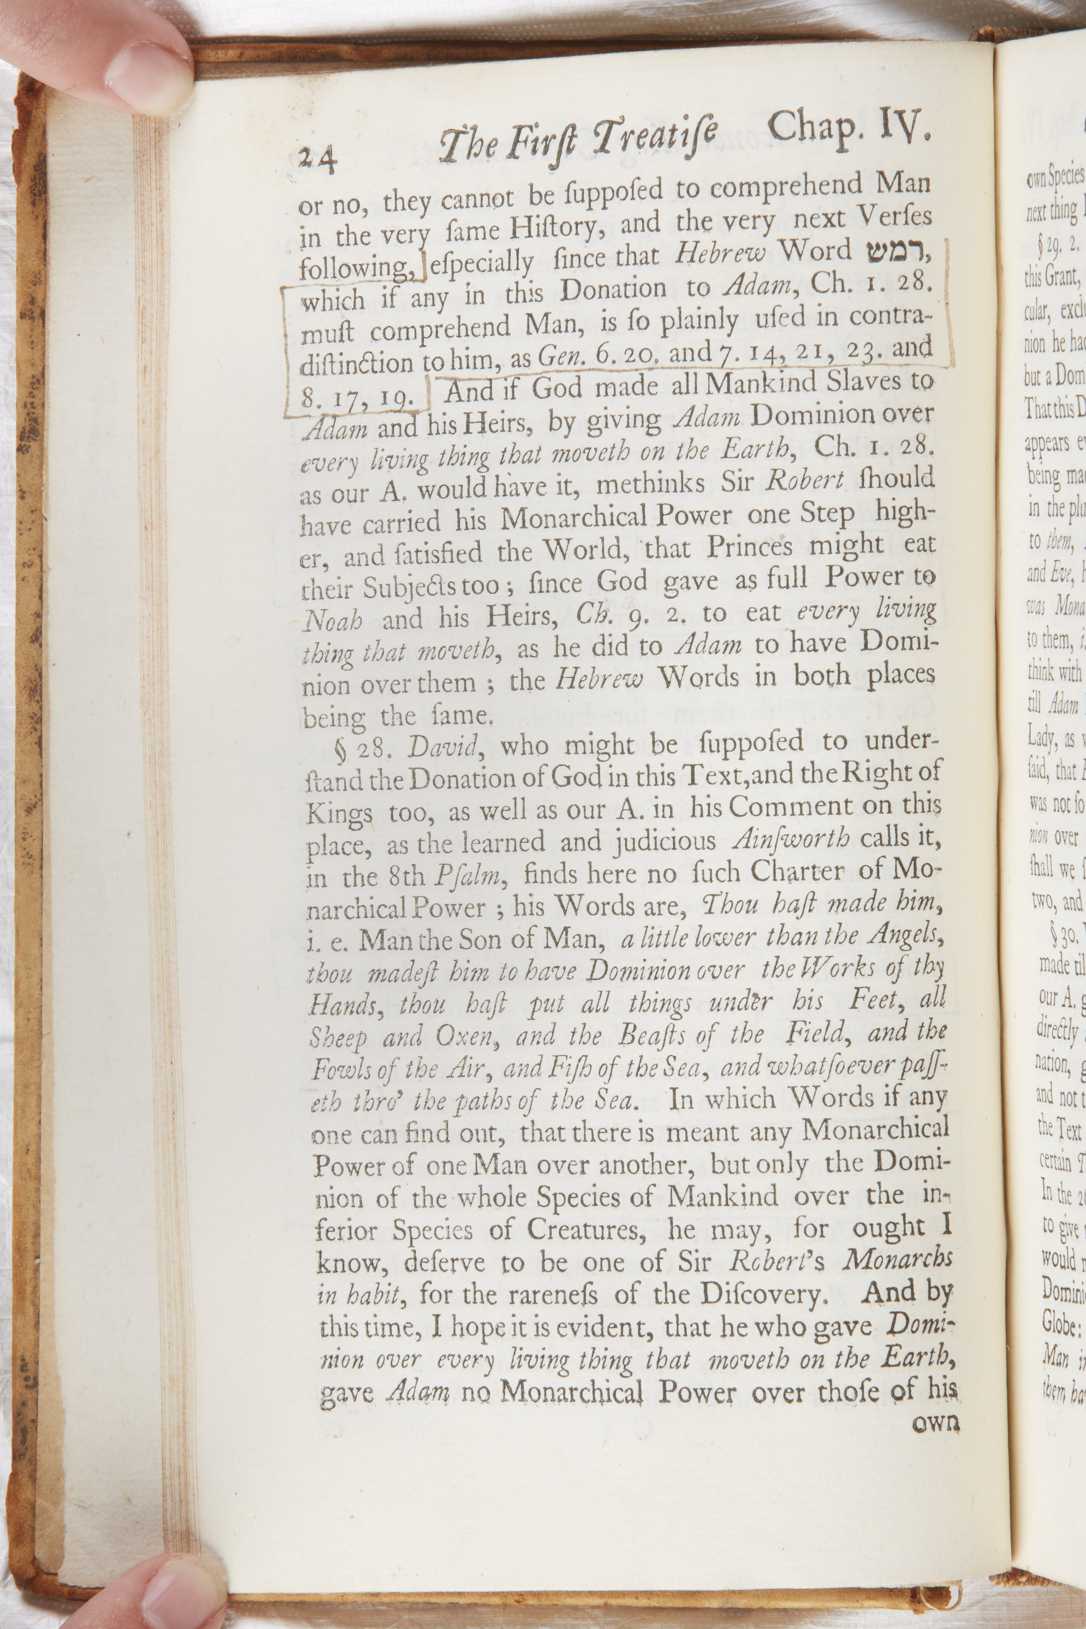 24 The Firſt Treatiſe Chap. IV.
or no, they cannot be ſuppoſed to comprehend Man
in the very ſame Hiſtory, and the very next Verſes
following, eſpecially ſince that Hebrew Word רמש,
which if any in this Donation to Adam, Ch. 1. 28.
muſt comprehend Man, is ſo plainly uſed in contra-
diſtinction to him, as Gen. 6. 20. and 7. 14, 21, 23. and
8. 17, 19. And if God made all Mankind Slaves to
Adam and his Heirs, by giving Adam Dominion over
every living thing that moveth on the Earth, Ch. 1. 28.
as our A. would have it, methinks Sir Robert ſhould
have carried his Monarchical Power one Step high-
er, and ſatisfied the World, that Princes might eat
their Subjects too; ſince God gave as full Power to
Noah and his Heirs, Ch. 9. 2. to eat every living
thing that moveth, as he did to Adam to have Domi-
nion over them; the Hebrew Words in both places
being the ſame.
§ 28. David, who might be ſuppoſed to under-
ſtand the Donation of God in this Text, and the Right of
Kings too, as well as our A. in his Comment on this
place, as the learned and judicious Ainſworth calls it,
in the 8th Pſalm, finds here no ſuch Charter of Mo-
narchical Power; his Words are, Thou haſt made him,
i. e. Man the Son of Man, a little lower than the Angels,
thou madeſt him to have Dominion over the Works of thy
Hands, thou haſt put all things under his Feet, all
Sheep and Oxen, and the Beaſts of the Field, and the
Fowls of the Air, and Fiſh of the Sea, and whatſoever paſſ-
eth thro' the paths of the Sea. In which Words if any
one can find out, that there is meant any Monarchical
Power of one Man over another, but only the Domi-
nion of the whole Species of Mankind over the in-
ferior Species of Creatures, he may, for ought I
know, deſerve to be one of Sir Robert's Monarchs
in habit, for the rareneſs of the Diſcovery. And by
this time, I hope it is evident, that he who gave Domi-
nion over every living thing that moveth on the Earth,
gave Adam no Monarchical Power over thoſe of his
own
own Species
next thing
§ 29. 2.
this Grant,
nion he had
but a Dom
That this D
appears
being
in the
to them,
and Eve,
was Mona
to them,
think with
till Adam
Lady, as
ſaid, that
was not ſo
nion over
ſhall we
two, and
§ 30.
made til
our A.
directly
nation,
and not
the Text
certain
In the
to give
would
Domini
Globe:
Man
them